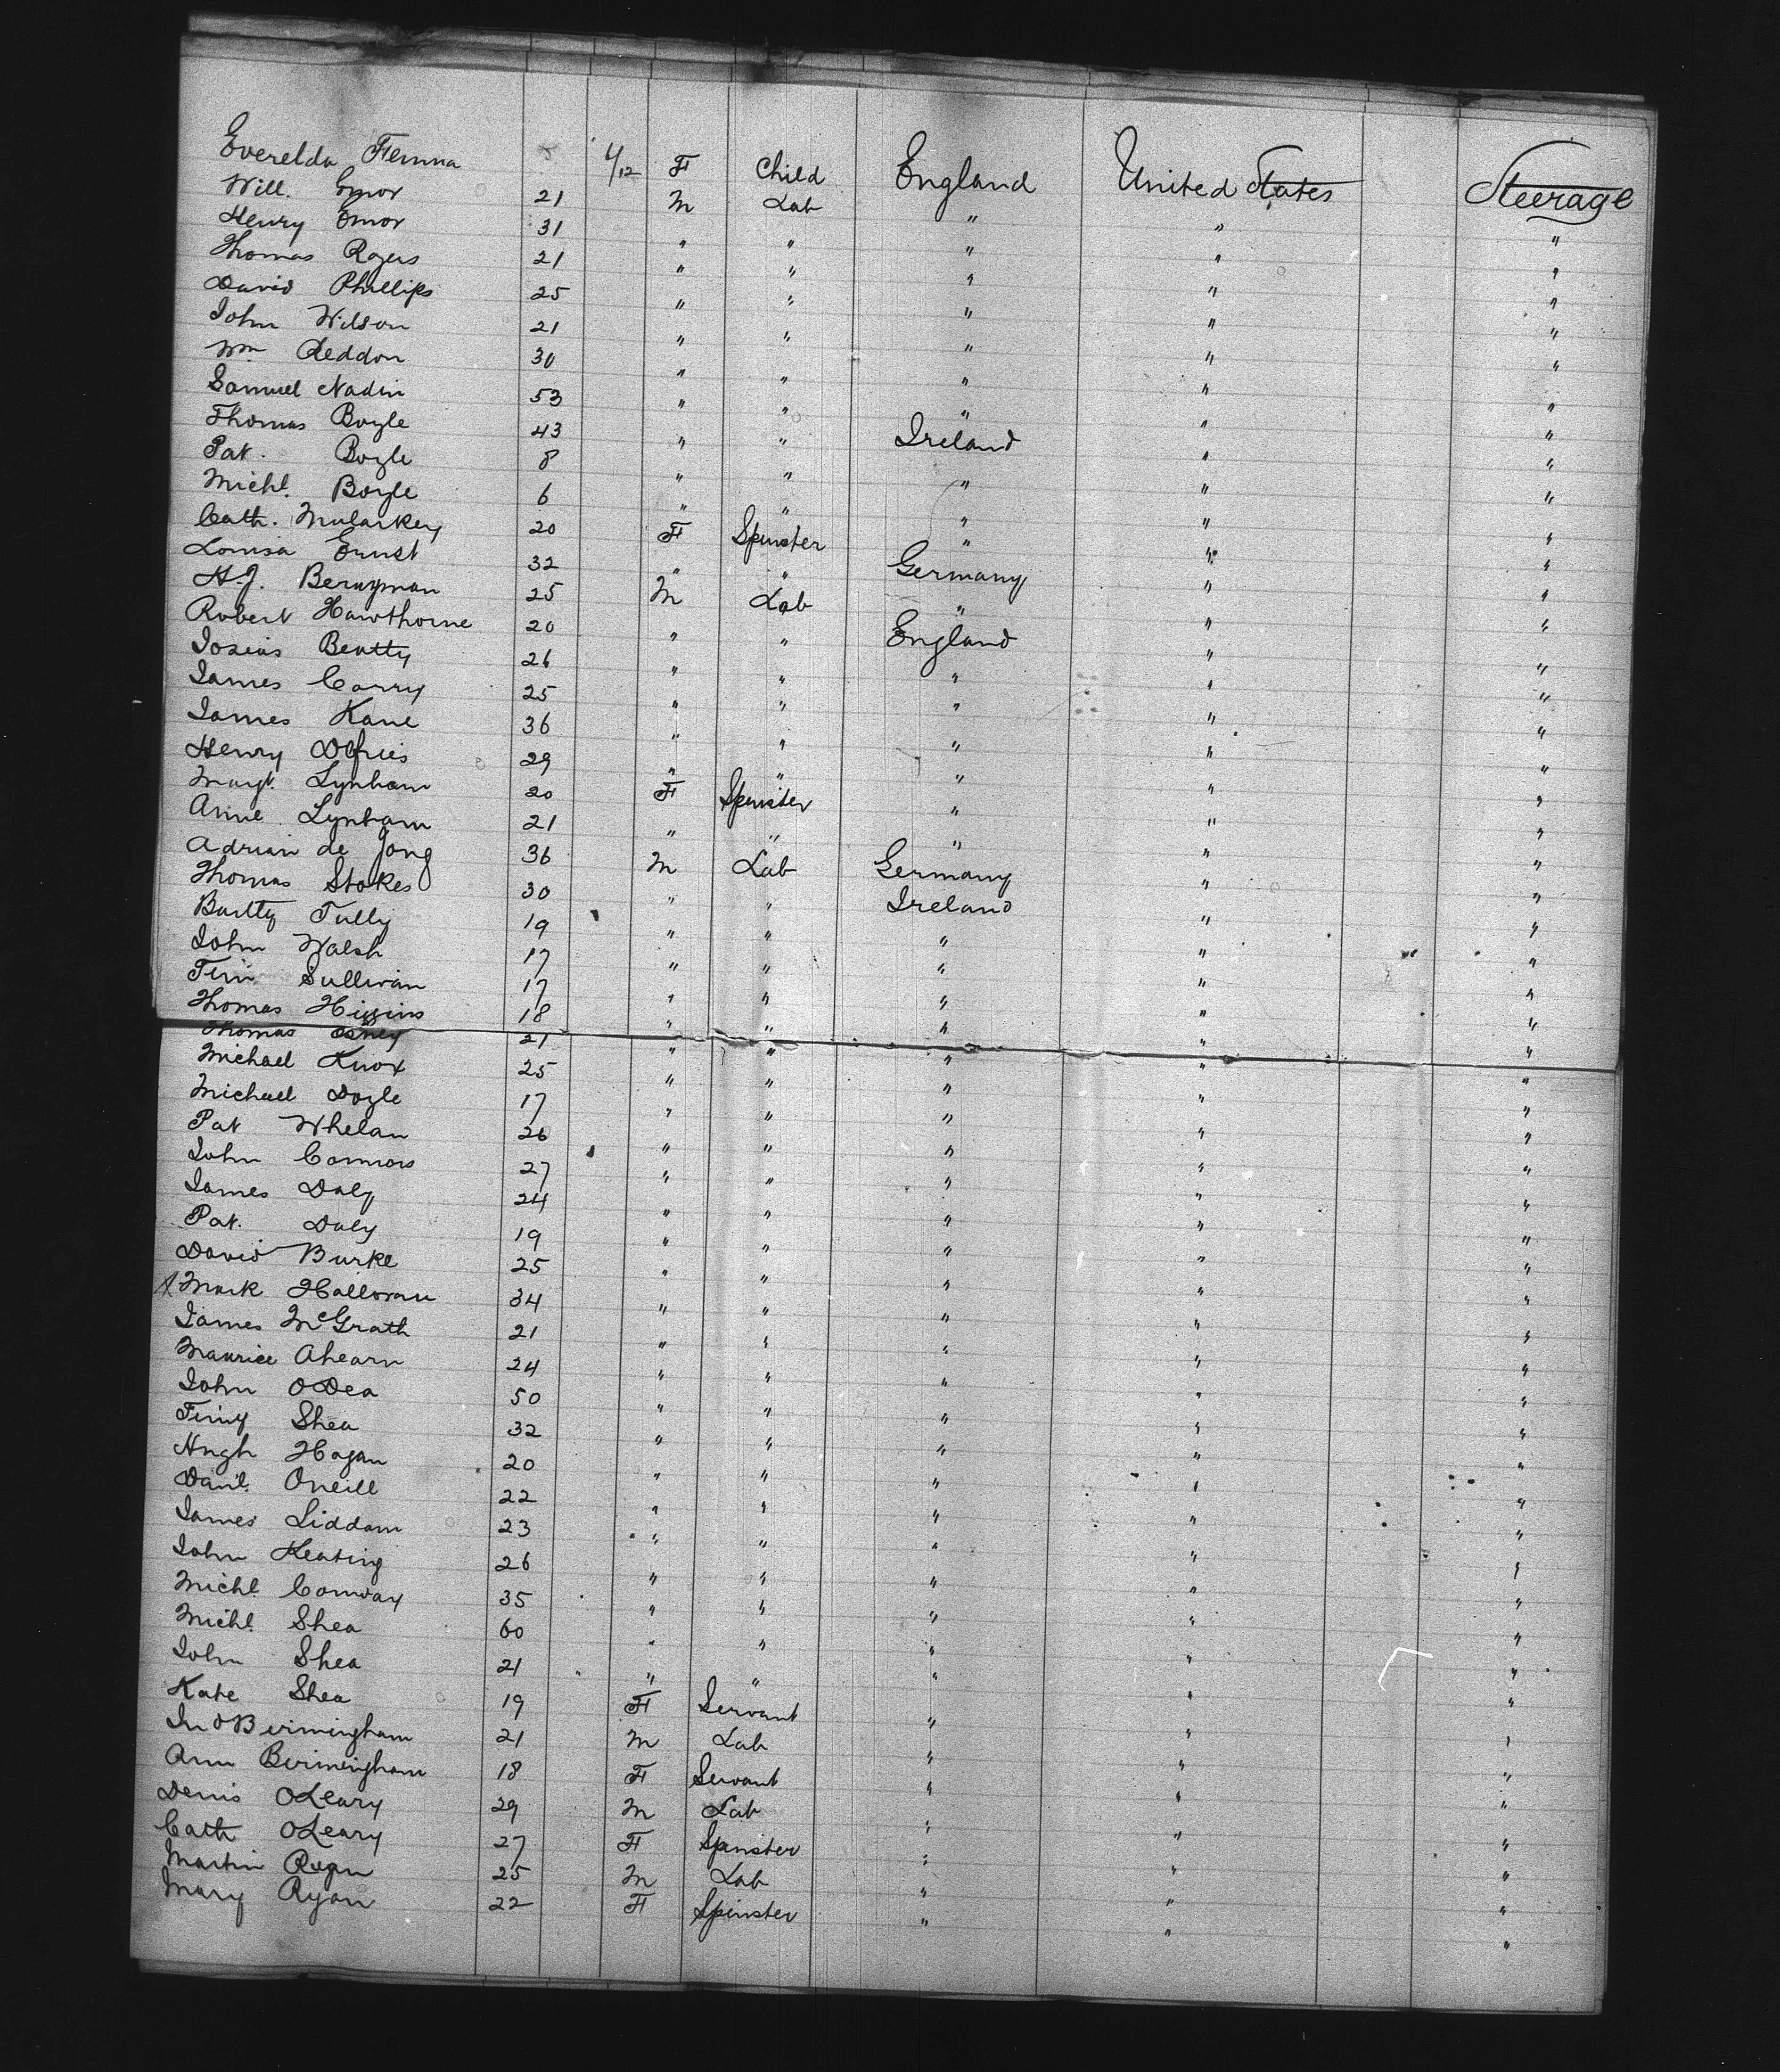 Everelda Femna 4/12 F Child England United States Steerage
Will. Emor 21 M Lab " " "
Henry Emor 31 " " " " "
Thomas Rogers 21 " " " " "
David Phillips 25 " " " " "
John Wilson 21 " " " " "
Wm Reddon 30 " " " " "
Samuel Nadin 53 " " " " "
Thomas Boyle 43 " " Ireland " "
Pat. Boyle 8 " " " " "
Michl. Boyle 6 " " " " "
Cath. Mularkey 20 F Spinster " " "
Louisa Ernst 32 " " Germany " "
H.J. Berryman 25 M Lab " " "
Robert Hawthorne 20 " " England " "
Josias Beatty 26 " " " " "
James Corry 25 " " " " "
James Kane 36 " " " " "
Henry 29 " " " " "
Margt. Lynham 20 F Spinster " " "
Anne Lynham 21 " " " " "
Adrian de Jong 36 M Lab Germany " "
Thomas Stokes 30 " " Ireland " "
Bartty Tully 19 " " " " "
John Walsh 17 " " " " "
Tim Sullivan 17 " " " " "
Thomas Higgins 18 " " " " "
Thomas 21 " " " " "
Michael Knox 25 " " " " "
Michael Doyle 17 " " " " "
Pat Whelan 26 " " " " "
John Connors 27 " " " " "
James Daly 24 " " " " "
Pat. Daly 19 " " " " "
David Burke 25 " " " " "
Mark Halloran 34 " " " " "
James McGrath 21 " " " " "
Maurice Ahearn 24 " " " " "
John ODea 50 " " " " "
Timy Shea 32 " " " " "
Hugh Hogan 20 " " " " "
Danl. Oneill 22 " " " " "
James Liddam 23 " " " " "
John Keating 26 " " " " "
Michl. Conway 35 " " " " "
Michl. Shea 60 " " " " "
John Shea 21 " " " " "
Kate Shea 19 F Servant " " "
Jno Birmingham 21 M Lab " " "
Ann Birmingham 18 F Servant " " "
Denis OLeary 29 M Lab " " "
Cath OLeary 27 F Spinster " " "
Martin Ryan 25 M Lab " " "
Mary Ryan 22 F Spinster " " "